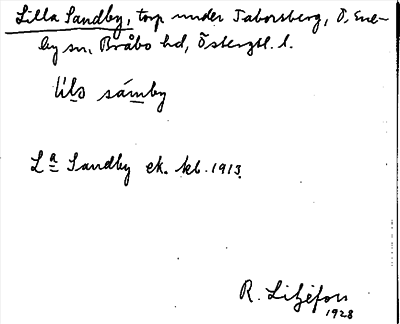 Lilla Sandby, torp under Taborsberg, Ö. Ene-
by sn, Bråbo hd, Östergtl. l.
sámby
La Sandby ek. kbl. 1913
R. Liljefors
1928